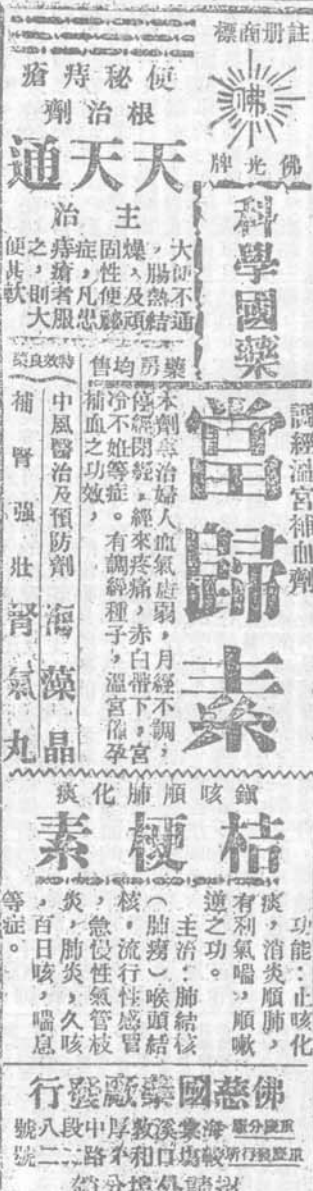 註册商標
佛
佛光牌
科學國藥
便秘痔瘡
根治劑
天天通
主治
大便不通
，腸熱結
燥，及頑
固性便秘
症，凡患
痔瘡者服
之，則大
便甚軟
藥房均售
調經溫宮補血劑
當歸素
本劑專治婦人血氣虛弱，月經不調，
停經閉經，經來疼痛，赤白帶下，宮
冷不姙等症。有調經種子，溫宮催孕
補血之功效，
特效良藥
中風醫治及預防劑 海藻晶
補腎強壯 腎氣丸
鎮咳順肺化痰
桔梗素
功能：止咳化
痰，消炎順肺，
有利氣喘，順嗽
逆之功。
主治：肺結核
（肺癆）喉頭結
核，流行性感冒
，急慢性氣管枝
炎，肺炎，久咳
，百日咳，喘息
等症。
佛慈國藥廠發行
重慶分廠 海棠溪敦厚中段八號
重慶發行所 較塲口和平路二二號